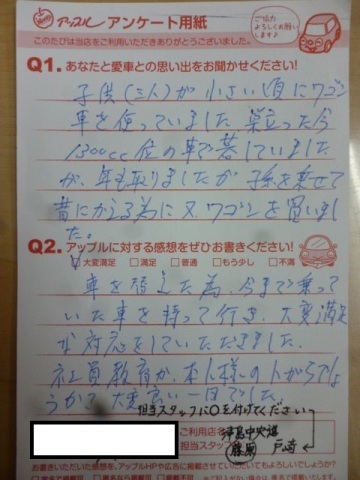 アップル アンケート用紙
ご協力
よろしくお願い
します♪
このたびは当店をご利用いただきありがとうございました。
Q1. あなたと愛車との思い出をお聞かせください!
子供(三人)が小さい頃にワゴン
車を使っていました 巣立った今
1300cc位の車で暮していました
が、年も取りましたが 子孫を乗せて
昔にかえる為に又、ワゴンを買いまし
た。
Q2. アップルに対する感想をぜひお書きください!
大変満足 満足 普通 もう少し 不満
車を替えた為、今まで乗って
いた車を持って行き、大変満足
な対応をしていただきました。
社員教育か、本人様の人がらでし
ょうか? 大変良い一日でした。
担当スタッフに○を付けてください
ご利用店名 津島中央道
担当スタッフ 藤原 戸崎
お書きいただいた感想を、アップルHPや広告に掲載させていただいてもよろしいでしょうか?